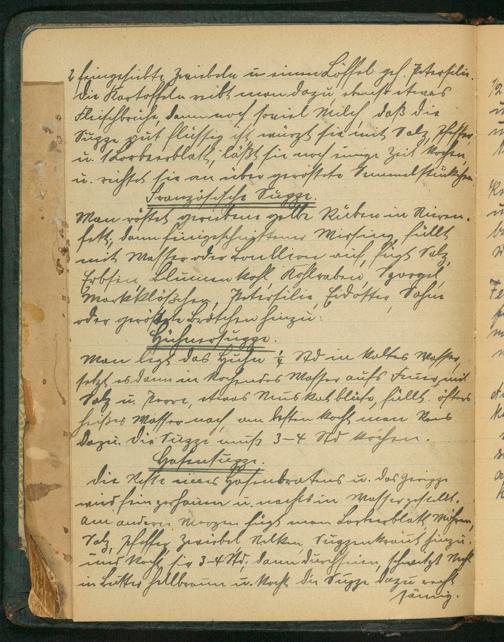 2 feingesiebte Zwiebeln u. einen Löffel geh. Petersilie.
Die Kartoffeln reibt man dazu etwas
Fleischbrühe, dann noch soviel Milch, daß die
Suppe gut flüssig ist würzt sie mit Salz, Pfeffer
u. Lorbeerblatt, läßt sie noch einige Zeit kochen
u. richtet sie an über geröstete Semmelstückchen
Französische Suppe.
Man röstet geriebene gelbe Rüben in Nieren-
fett, dann feingeschnittener Wirsing, füllt
mit Wasser oder Bouillon auf, fügt Salz,
Erbsen, Blumenkohl, Kohlraben, Spargel,
Markklößchen, Petersilie, Eidotter, Sahne
oder geröstete Brötchen hinzu.
Hühnersuppe.
Man legt das Huhn Std in kaltes Wasser,
setzt es dann in kochendes Wasser aufs Feuer mit
Salz u. etwas Muskatblüte, füllt öfters
heißes Wasser nach, am besten kocht man Reis
dazu. Die Suppe muß 3-4 Std kochen.
Hasensuppe.
Die Reste eines Hasenbratens u. das Gerippe
wird fein zerhauen u. nachts in Wasser gestellt.
Am anderen Morgen fügt man Lorbeerblatt, Möhren,
Salz, Pfeffer Zwiebel Nelken, Suppenkraut hinzu
und kocht sie 3-4 Std, dann schwitzt Mehl
in Butter hellbraun u. kocht die Suppe dazu recht
sämig.